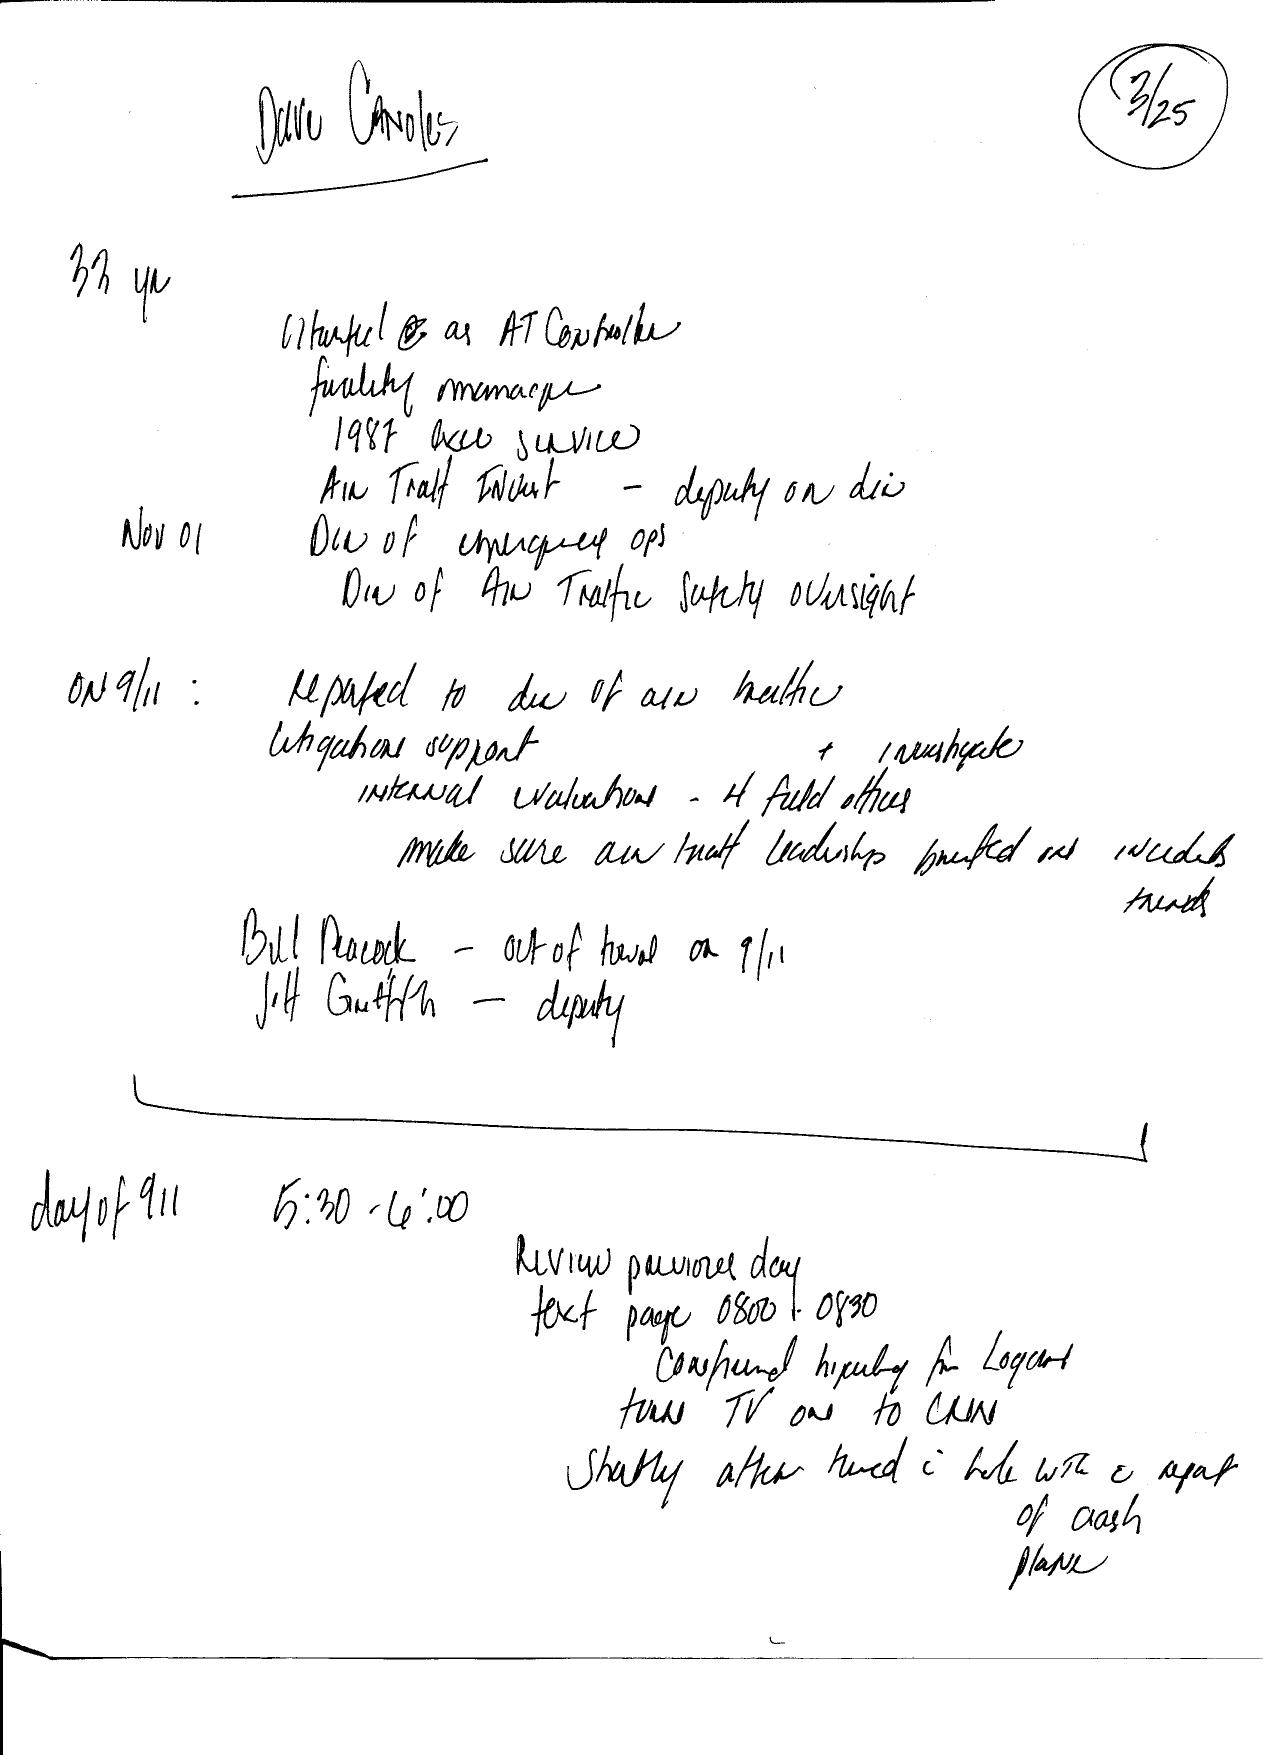 Dave Canoles
3/25
33 yr
started as AT Controller
facility manager
1987 exec service
Air Traff Invest - deputy on div
Nov 01 Dir of emergency ops
Dir of Air Traffic Safety oversight
ON 9/11: reported to dir of air traffic
litigation support + investigate
internal evaluations - 4 field offices
make sure air traff leadership briefed on incidents
trends
Bill Peacock - out of town on 9/11
Jeff Griffith - deputy
day of 911 5:30 - 6:00
Review previous day
text page 0800 - 0830
confirmed hijacking from Logan
turn TV on to CNN
Shortly after tuned i hole with a report
of crash
plane